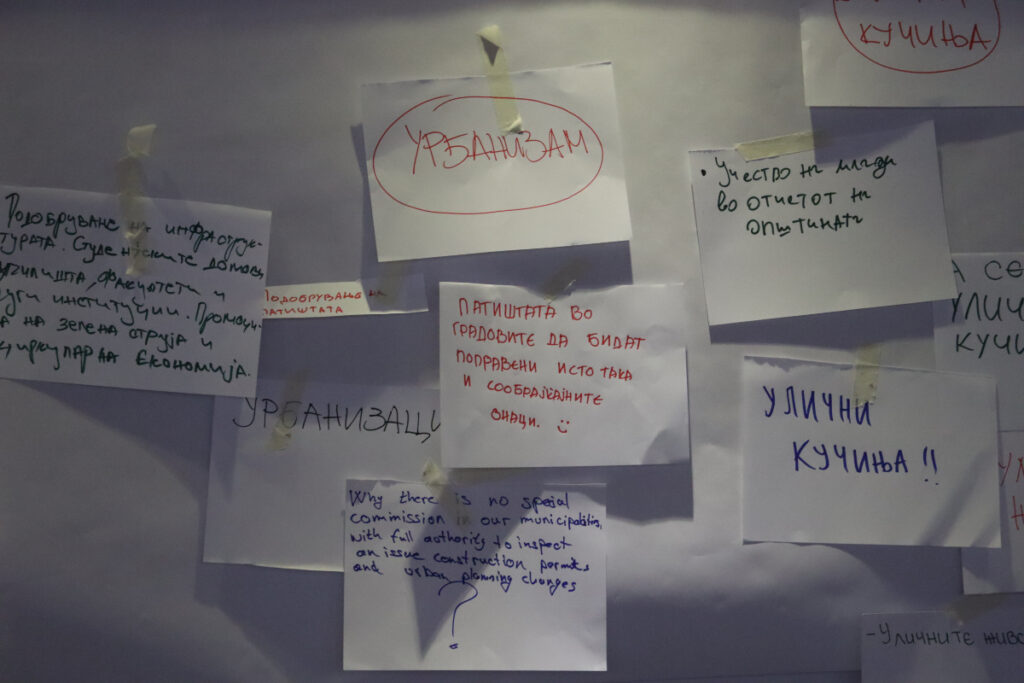 КУЧИЊА
УРБАНИЗАМ
• Учество на млади
во отчетот на
општинати
Подобрување на инфраструк-
турата. Студентските домови
училишта, факултети и
институции. Промоци-
на зелена струја и
циркуларна Економија.
ПОДОБРУВАЊЕ НА
ПАТИШТАТА
ПАТИШТАТА ВО
ГРАДОВИТЕ ДА БИДАТ
ПОПРАВЕНИ ИСТО ТАКА
И СООБРАЈКАЈНИТЕ
ЗНАЦИ. :)
УРБАНИЗАЦИ
А СЕ
УЛИЧ
КУЧИ
УЛИЧНИ
КУЧИЊА !!
Why there is no special
commission in our municipalities,
with full authority to inspect
an issue construction permits
and urban planning changes
?
- УЛИЧНИТЕ ЖИВО